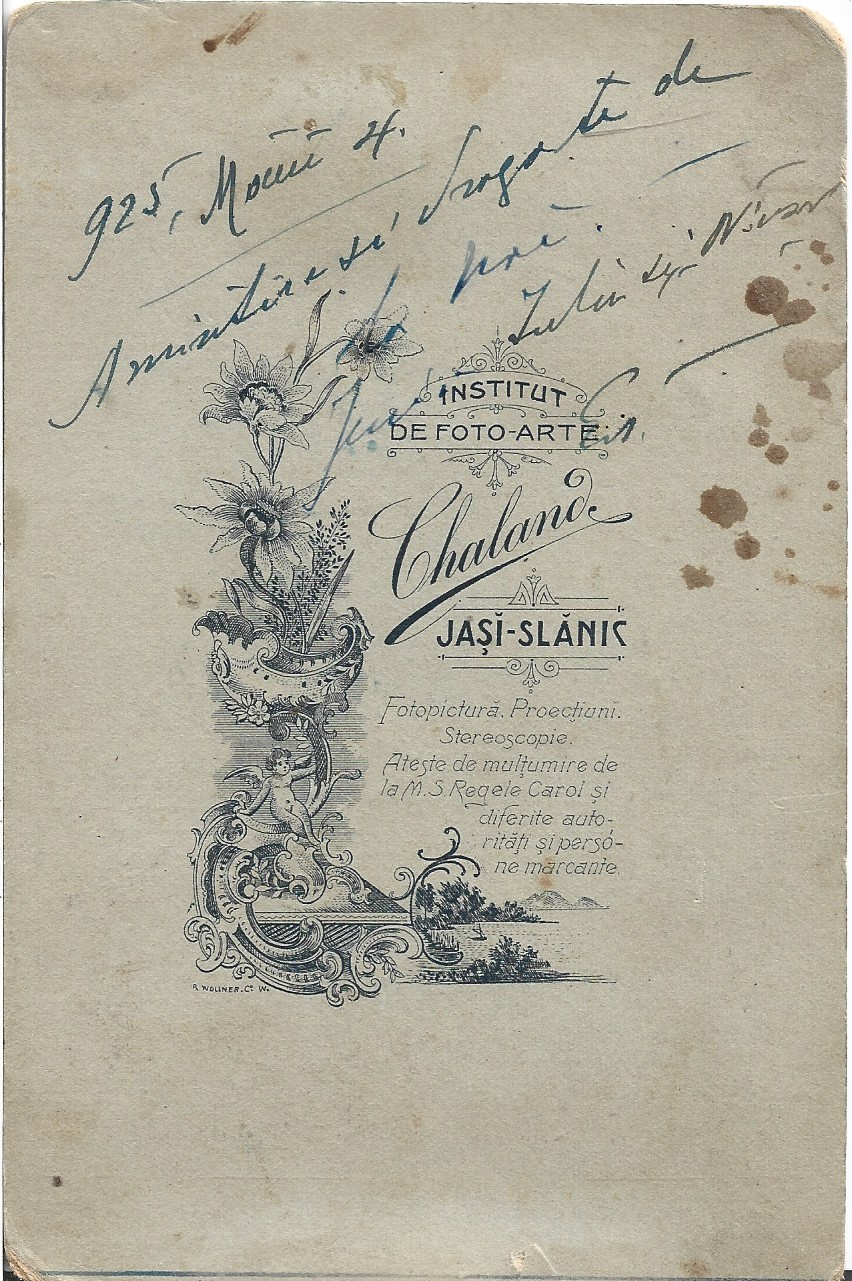 925, 4.
Amintire si dragoste de
la noi.
Iuliu și
INSTITUT
DE FOTO-ARTE
Chaland
JAŞĬ-SLĂNIC
Fotopictură. Proecţiuni.
Stereoscopie.
Ateste de mulţumire de
la M. S. Regele Carol şi
diferite auto-
rităţi şi persó-
ne marcante.
R. WOLINER. Co. W.